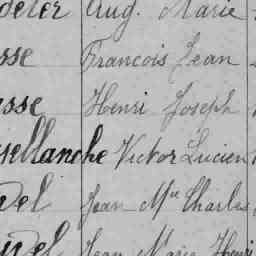 Aug. Marie
sse Francois Jean
asse Henri Joseph
ellanche Victor Lucien
del Jean Mie Charles
Jean Marie Henri